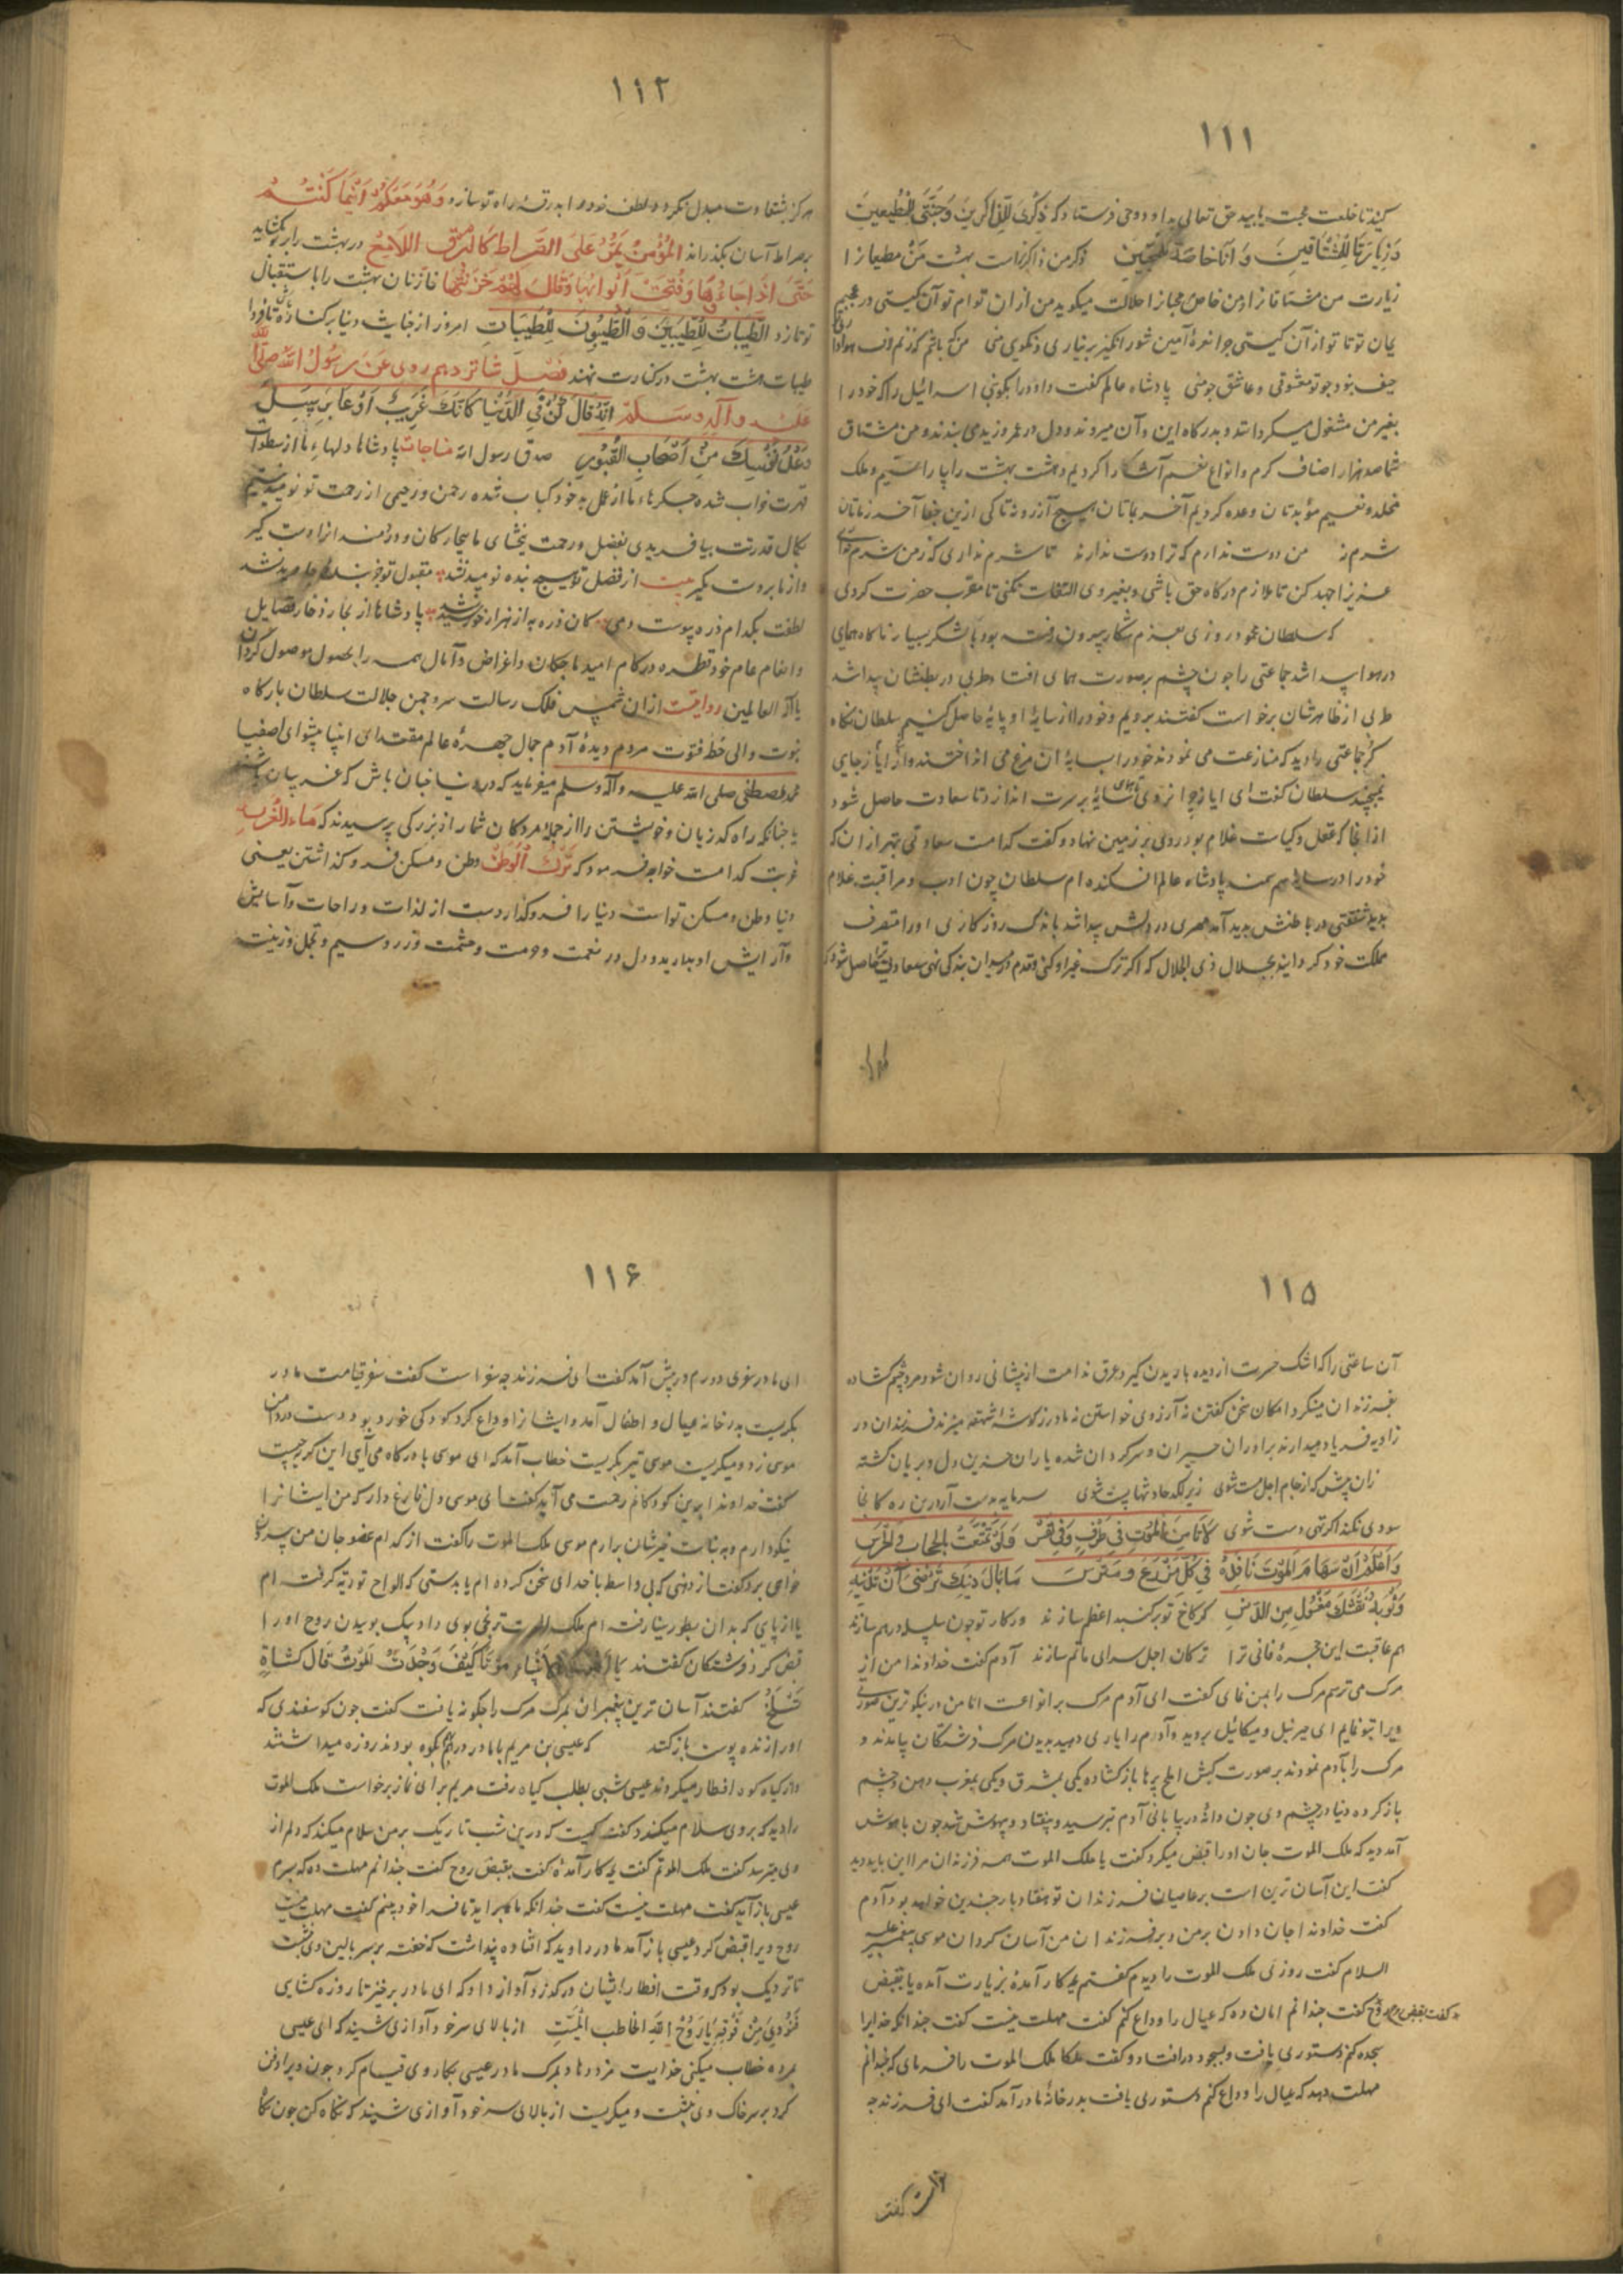 ۱۱۱
کنید تا خلعت محبت یابید حق تعالی بداود وحی فرستاد که ذِکْرِی لِلذَّاکِرِینَ وَجَنَّتِی لِلْمُطِیعِینَ
وَزِیَارَتِی لِلْمُشْتَاقِینَ وَ اَنَا خَاصَةٌ لِلْمُحِبِّینَ ذکر من ذاکرانراست بهشت من مطیعانرا
زیارت من مشتاقانرا و من خاص محبانرا جلالت میکوید من ازان توام تو آن کیستی
حیف بود جو تو معشوقی و عاشق جو منی پادشاه عالم کفت داود را بکوی بنی اسرائیل را که خود را
بغیر من مشغول میکردانند و بدرکاه این و آن میروند و دل در عمرو زید می بندند و من مشتاق
شما صد هزار اصناف کرم و انواع نعم آشکارا کردیم و هشت بهشت را بیاراستیم و ملک
مخلد و نعیم مؤبدتان وعده کردیم آخر بماتان هیچ آرزو نه تا کی ازین جفا آخر زماتان
شرم نه من دوست ندارم که ترا دوست ندارند تا شرم نداری که ز من شرم
عزیزا جهد کن تا ملازم درکاه حق باشی و بغیر وی التفات نکنی تا مقرب حضرت کردی
که سلطان محمود روزی بعزم شکار بیرون رفته بود با لشکر بسیار ناکاه همای
در هوا پیدا شد جماعتی را جون چشم بر صورت همای افتاد طربی در بطنشان پیدا شد
طربی از ظاهرشان برخواست کفتند برویم و خود را از سایهٔ او پایهٔ حاصل کنیم سلطان نکاه
کرد جماعتی را دید که منازعت می نمودند خود را بسایهٔ آن مرغ می انداختند و ایاز از جای
نمیجنبد سلطان کفت ای ایاز جرا نروی تا همای سایهٔ بر سرت اندازد تا سعادت حاصل شود
ازانجا که عقل و کیاست غلام بود روی بر زمین نهاد و کفت کدامست سعادتی بهتر ازان که
خود را در سایهٔ سم سمند پادشاه عالم افکنده ام سلطان چون ادب و مراقبت غلام
بدید شفقتی در باطنش پدید آمد مهری در دلش پیدا شد باندک روزکاری او را متصرف
مملکت خود کردانید بجلال ذی الجلال که اکر ترک غیر او کنی و قدم در میدان بندکی نهی سعادت حاصل شود که
۱۱۲
هرکز بشقاوت مبدل نکردد و لطف خود را بدرقهٔ راه تو سازد وَهُوَ مَعَکُمْ اَیْنَمَا کُنْتُمْ
بر صراط آسان بکذراند اَلْمُؤْمِنُ یَمُرُّ عَلَی الصِّرَاطِ کَالْبَرْقِ اللَّامِعِ در بهشت را بر تو بکشاید
حَتَّی اِذَا جَاءُوهَا وَفُتِحَتْ اَبْوَابُهَا وَقَالَ لَهُمْ خَزَنَتُهَا تا زنان بهشت را باستقبال
تو تازد اَلطَّیِّبَاتُ لِلطَّیِّبِینَ وَ الطَّیِّبُونَ لِلطَّیِّبَاتِ امروز از خبایث دنیا بر کناره باش تا فردا
طیبات هشت بهشت در کنارت نهند فَصْل شانزدهم روی عَنْ رَسُولِ اللّٰه صَلَّی اللّٰه
عَلَیْهِ وَ آلِهِ وَسَلَّمَ اَنَّهُ قَالَ کُنْ فِی الدُّنْیَا کَاَنَّکَ غَرِیبٌ اَوْ عَابِرُ سَبِیلٍ
وَعُدَّ نَفْسَکَ مِنْ اَصْحَابِ الْقُبُورِ صدق رسول الله مناجات پادشاها دلهاء ما از سطوات
قهرت خراب شده جکرهاء ما از عمل بد خود کباب شده رحمن و رحیمی از رحمت تو نومید نیستیم
بکمال قدرتت بیافریدی بفضل و رحمت ببخشای ما بیچارکان و درمندانرا دست کیر
و از ما بروت مکیر بیت از فضل تو هیچ بنده نومید نشد مقبول تو جز مقبل جاوید نشد
لطفت بکدام ذره پیوست دمی کان ذره به از هزار خورشید نشد پادشاها از بحار زخار فضایل
و انعام عام خود قطره در کام امید ما جکان و اغراض و آمال همه را بحصول موصول کردان
یا اله العالمین روایتست ازان شمس فلک رسالت سرو جمن جلالت سلطان بارکاه
نبوت والی خط فتوت مردم دیدهٔ آدم جمال جهرهٔ عالم مقتدای انبیا پیشوای اصفیا
محمد مصطفی صلی الله علیه و آله و سلم میفرماید که در دنیا جنان باش که غریبان باشند
یا جنانکه راه کذریان و خویشتن را از جملهٔ مردکان شمار از بزرکی پرسیدند که مَا الْغُرْبَةُ
غربت کدامست خواجه فرمود که تَرْکُ الْوَطَنِ وطن و مسکن فرو کذاشتن یعنی
دنیا وطن و مسکن تو است دنیا را فرو کذار دست از لذات و راحات و آسایش
و آرایش او بدارید و دل در نعمت و حرمت و حشمت و زر و سیم و تجمل و زینت
۱۱۵
آن ساعتی را که اشک حسرت از دیده باریدن کیرد عرق ندامت از پیشانی روان شود مرد چشم کشاده
بفرزندان مینکرد امکان سخن کفتن نه آرزوی خواستن نه مادر ز کوشه میزند فرزندان در
زاویه فریاد میدارند برادران حیران و سرکردان شده یاران حزین دل و بریان کشته
زان پیش که از جام اجل مست شوی زیر لکد حادثها پست شوی سرمایه بدست آر درین ره کانجا
سودی نکند اکر تهی دست شوی لَا تَأمَنِ الْمَوْتَ فِی طَرْفٍ وَ فِی نَفَسٍ وَلَوْ تَمَنَّعْتَ بِالْحِجَابِ وَ الْحَرَسِ
وَاعْلَمْ اَنَّ سِهَامَ الْمَوْتِ نَافِذَةٌ فِی کُلِّ مُدَّرِعٍ وَ مُتَّرِسٍ مَا بَالُ دِینِکَ تَرْضَی اَنْ تُدَنِّسَهُ
وَثَوْبُ نَفْسِکَ مَغْسُولٌ مِنَ الدَّنَسِ کر کاخ تو بر کنبد اعظم سازند ور کار تو جون سلسله درهم سازند
هم عاقبت این حجرهٔ فانی ترا ترکان اجل سرای ماتم سازند آدم کفت خداوندا من از
مرک می ترسم مرک را بمن نمای کفت ای آدم مرک بر انواعست اما من در نیکوترین صورتی
ویرا بتو نمایم ای جبرئیل و میکائیل بروید و آدم را یاری دهید بدیدن مرک فرشتکان بیامدند و
مرک را بآدم نمودند بر صورت کبش املح پرها باز کشاده یکی بمشرق و یکی بمغرب دهن و چشم
باز کرده دنیا در چشم وی جون دانهٔ در بیابانی آدم بترسید و بیفتاد و بیهوش شد جون با هوش
آمد دید که ملک الموت جان او را قبض میکرد کفت یا ملک الموت همه فرزندان مرا این باید دید
کفت این آسان ترین است بر عاصیان فرزندان تو هفتاد بار جندین خواهد بود آدم
کفت خداوندا جان دادن بر من و بر فرزندان من آسان کردان موسی پیغمبر علیه
السلام کفت روزی ملک الموت را دیدم کفتم بجه کار آمدهٔ بزیارت آمده یا بقبض
روح کفت بقبض روح کفت جندانم امان ده که عیال را وداع کنم کفت مهلت نیست کفت جندانکه خدایرا
سجده کنم دستوری یافت و بسجود در افتاد و کفت ملکا ملک الموت را فرمای که جندانم
مهلت دهد که عیال را وداع کنم دستوری یافت بدر خانهٔ مادر آمد کفت ای فرزند جه
۱۱۶
ای مادر سفری دورم در پیش آمد کفت ای فرزند چه سفر است کفت سفر قیامت مادر
بکریست بدر خانه عیال و اطفال آمد و ایشانرا وداع کرد کودکی خورد بود دست در دامن
موسی زد و میکریست موسی نیز بکریست خطاب آمد که ای موسی بدرکاه می آیی این کریه چیست
کفت خداوندا برین کودکانم رحمت می آید کفت ای موسی دل فارغ دار که من ایشانرا
نیکو دارم و به نبات خیرشان برارم موسی ملک الموت را کفت از کدام عضو جان من بیرون
خواهی برد کفت از دهنی که بی واسط با خدای سخن کرده ام یا بدستی که الواح توریة کرفته ام
یا از پایی که بدان بطور سینا رفته ام ملک الموت ترنجی بوی داد بیک بوییدن روح او را
قبض کرد فرشتکان کفتند یا اَهْوَنَ الْاَنْبِیَاءِ مَوْتًا کَیْفَ وَجَدْتَ الْمَوْتَ قَالَ کَشَاةٍ
تُسْلَخُ کفتند آسان ترین پیغمبران بمرک مرک را چکونه یافت کفت جون کوسفندی که
او را زنده پوست باز کنند که عیسی بن مریم با مادر در کوه بودند روزه میداشتند
و از کیاه کوه افطار میکردند عیسی شبی بطلب کیاه رفت مریم برای نماز برخواست ملک الموت
را دید که بر وی سلام میکند کفت کیست که درین شب تاریک بر من سلام میکند که دلم از
وی میترسد کفت ملک الموتم کفت بجه کار آمدهٔ کفت بقبض روح کفت جندانم مهلت ده که پسرم
عیسی باز آید کفت مهلت نیست کفت جندانکه تا فرا خود بینم کفت مهلت نیست
روح ویرا قبض کرد عیسی باز آمد مادر را دید که افتاده پنداشت که خفته بر سر بالین وی نشست
تا نزدیک بود که وقت افطار ایشان درکذرد آواز داد که ای مادر برخیز تا روزه کشایی
فَنُودِیَ مِنْ فَوْقِهِ یَا رُوحَ اللّٰهِ اتخاطب الْمَیِّتَ از بالای سر خود آوازی شنید که ای عیسی
مرده خطاب میکنی خدایت مزد دهاد بمرک مادر عیسی بکار وی قیام کرد جون ویرا دفن
کرد بر سر خاک وی نشست و میکریست از بالای سر خود آوازی شنید که نکاه کن جون نکاه